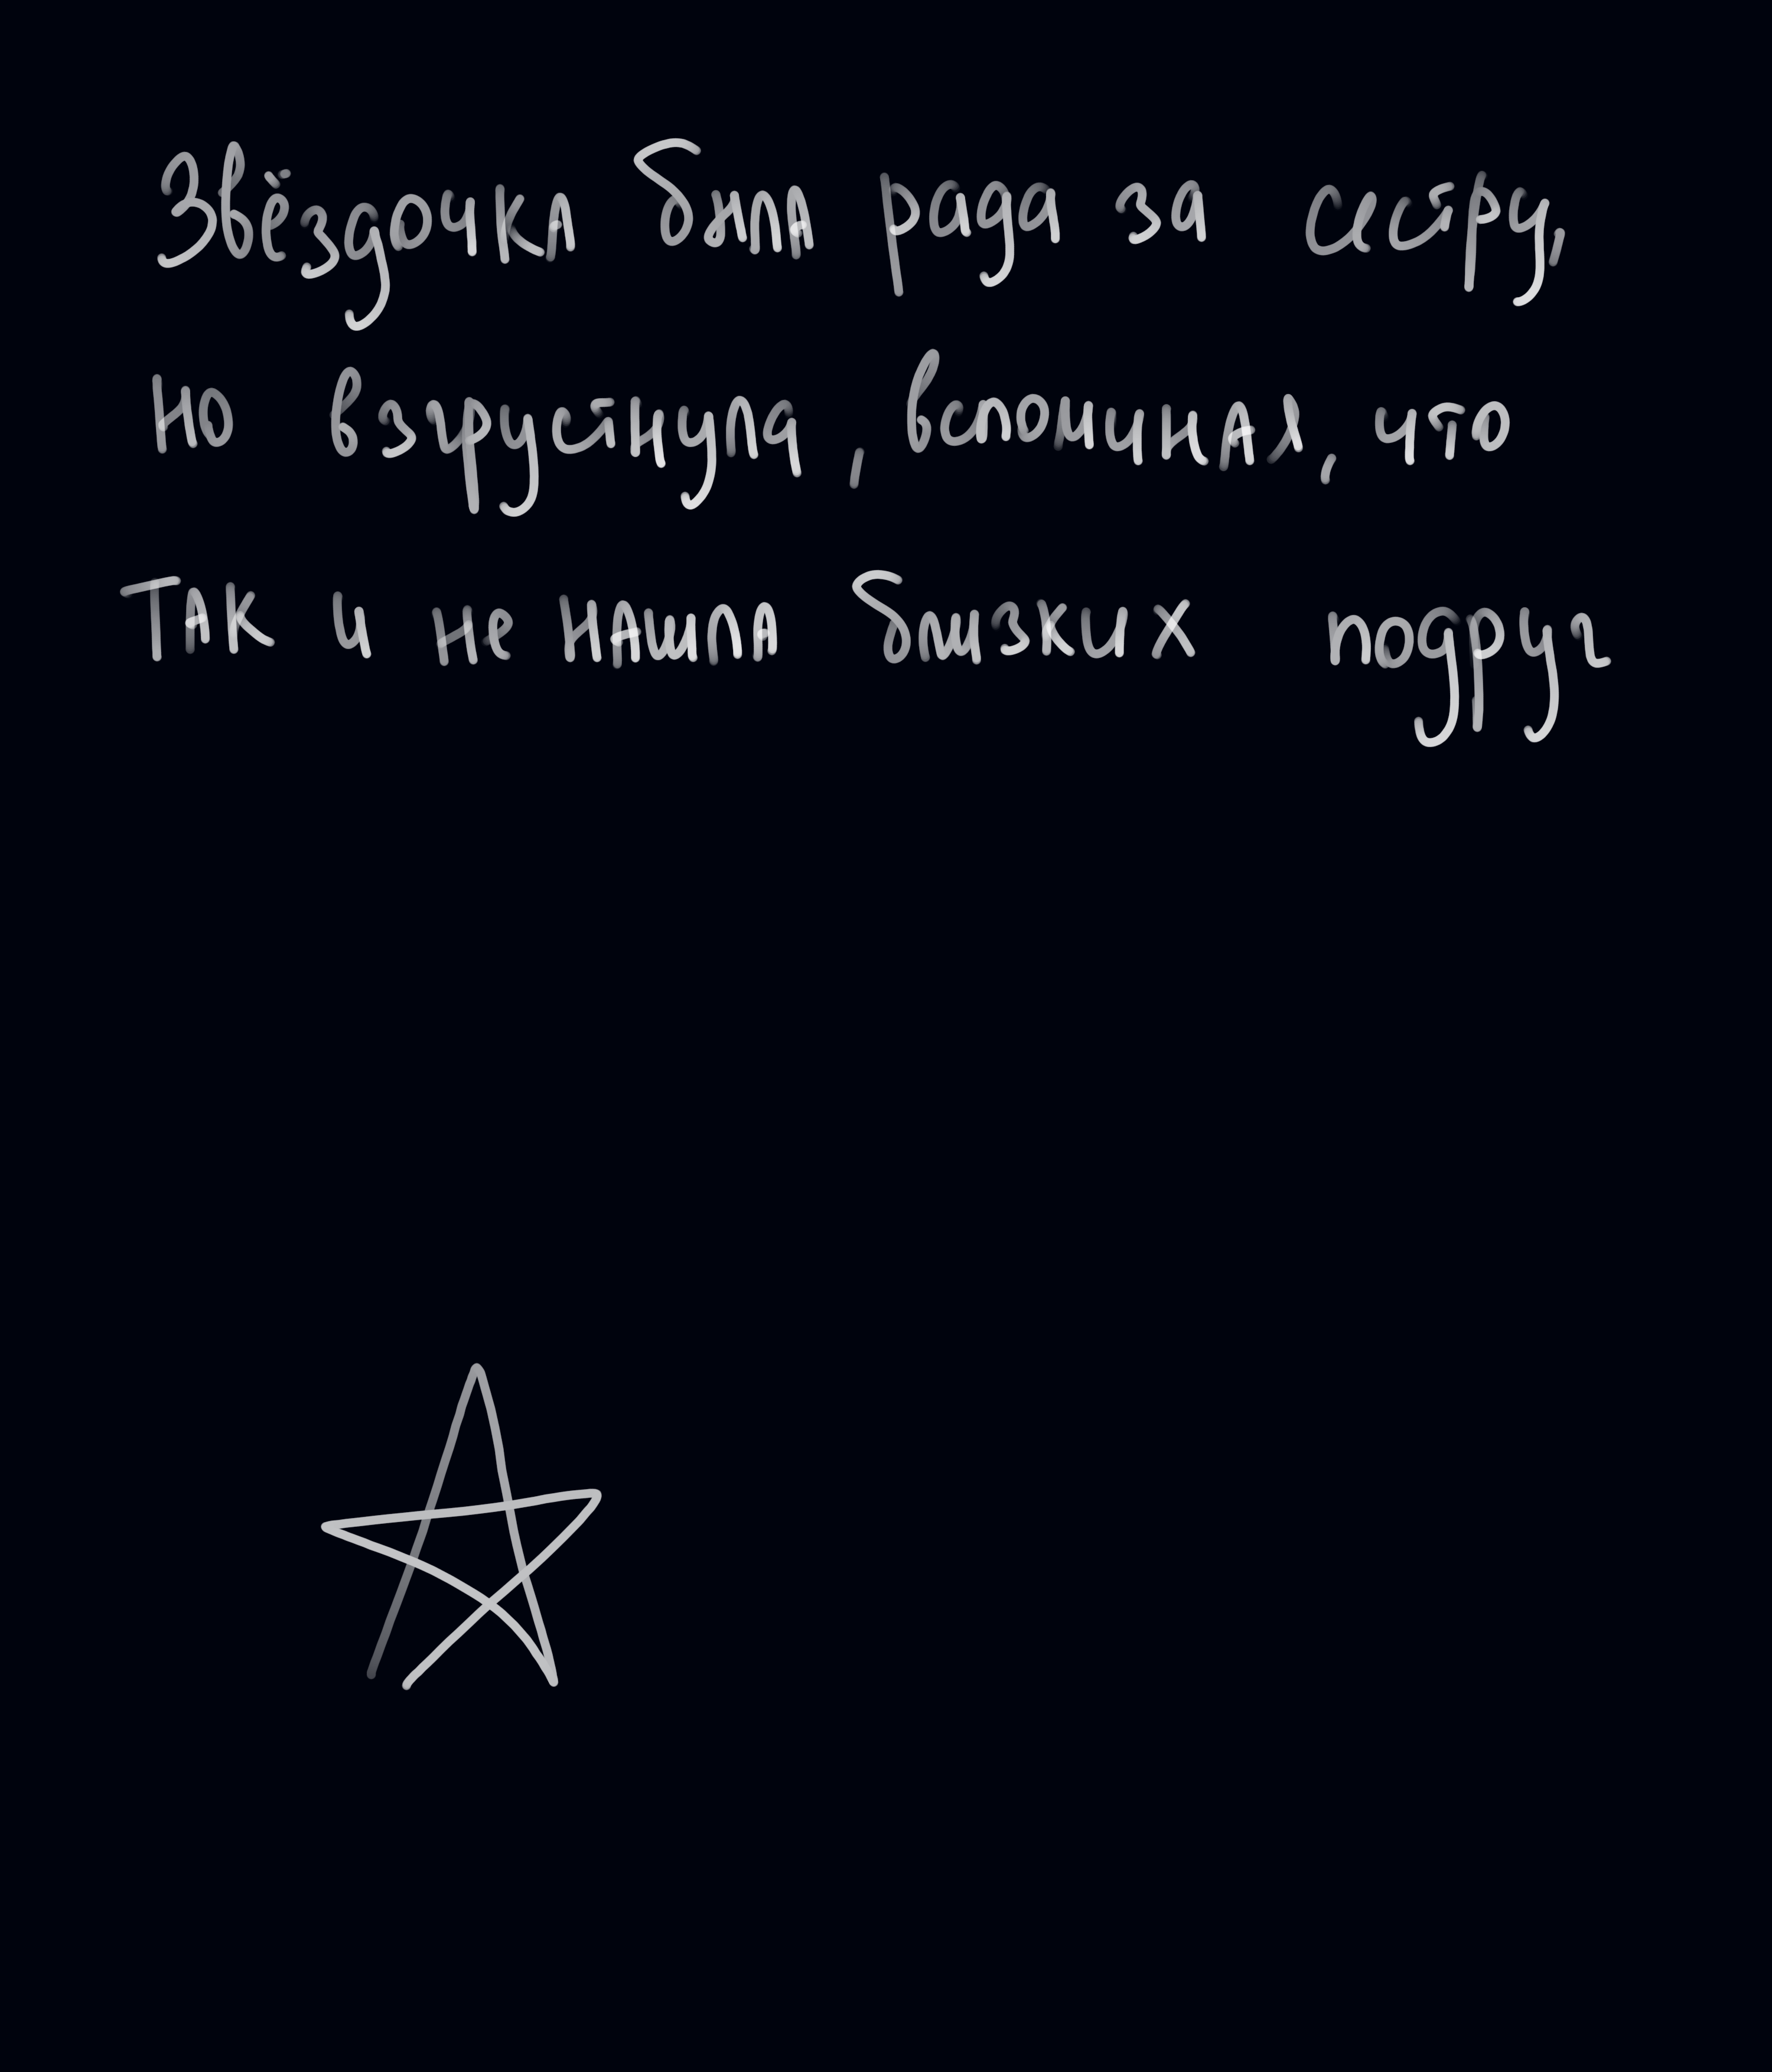 Звёздочка была рада за сестру,
но взгрустнула, вспоминая, что
так и не нашла близких подруг